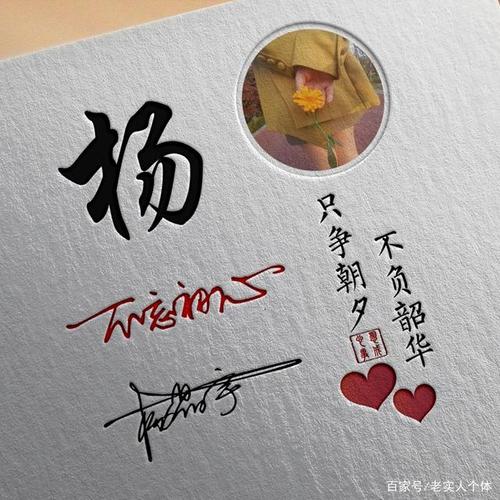 杨
不忘初心
只争朝夕
不负韶华
百家号/老实人个体